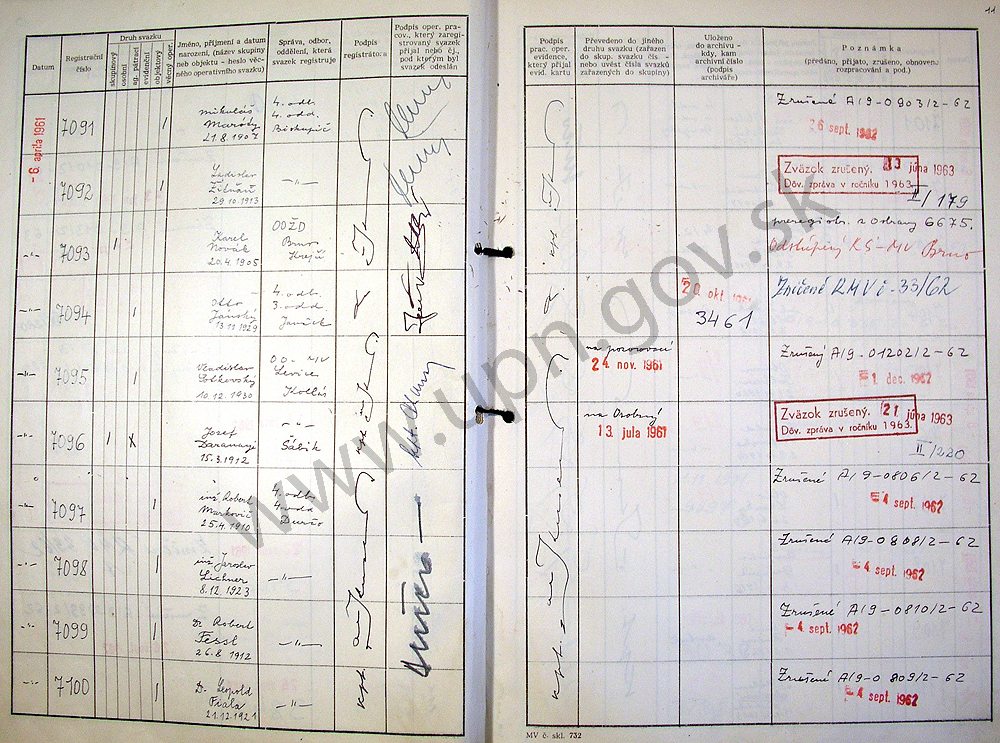 Datum
Registrační číslo
Druh svazku
skupinový
osobní
ag. pátrací
evidenční
objektový
věcný oper.
Jméno, příjmení a datum
narození, (název skupiny
neb objektu - heslo věc-
ného operativního svazku)
Správa, odbor,
oddělení, která
svazek registruje
Podpis
registrátora
Podpis oper. pra-
cov., který zaregi-
strovaný svazek
přijal nebo čj.,
pod kterým byl
svazek odeslán
- 6. apríla 1961
7091
Mikuláš
21.8.1907
4. odb.
4. odd.
Biskupič
7092
Ladislav
29.10.1913
-"-
-"-
7093
Karel
Novák
20.4.1905
OOŽD
Brno
Krejčí
-"-
7094
Otto
Jánský
13.11.1929
4. odb.
3. odd.
Janíček
-"-
7095
Vladislav
Sobkovský
10.12.1930
Levice
Kollár
-"-
7096
Jozef
15.3.1912
-"-
Šálik
-"-
7097
inž Robert
Markovič
25.4.1910
4. odb.
4. odd
-"-
7098
inž Jaroslav
Lichner
8.12.1923
-"-
-"-
7099
Dr Robert
Fessl
26.8.1912
-"-
-"-
7100
Dr. Leopold
Fiala
21.12.1921
-"-
11
Podpis
prac. oper.
evidence,
který přijal
evid. kartu
Převedeno do jiného
druhu svazku (zařazen
do skup. svazku čís. -
nebo uvést čísla svazků
zařazených do skupiny)
Uloženo
do archivu -
kdy, kam
archivní číslo
(podpis
archiváře)
Poznámka
(předáno, přijato, zrušeno, obnoven.
rozpracování a pod.)
Zrušené A/9-0903/2-62
26 sept. 1962
Zväzok zrušený. 13 júna 1963
Dôv. zpráva v ročníku 1963.
II/179
preregistr. z Ostravy 6675.
Odstúpený KS-MV Brno
20 okt. 1961
3461
Zničené RMV č. 33/62
na pozorovací
24 nov. 1961
Zrušený A/9-01202/2-62
- 1. dec. 1962
na Osobný
13 jula 1961
Zväzok zrušený. 21 júna 1963
Dôv. zpráva v ročníku 1963.
II/220
Zrušené A/9-0806/2-62
- 4 sept. 1962
Zrušené A/9-0808/2-62
- 4 sept. 1962
Zrušené A/9-0810/2-62
- 4 sept. 1962
Zrušené A/9-0809/2-62
- 4 sept. 1962
MV č. skl. 732
www.upn.gov.sk